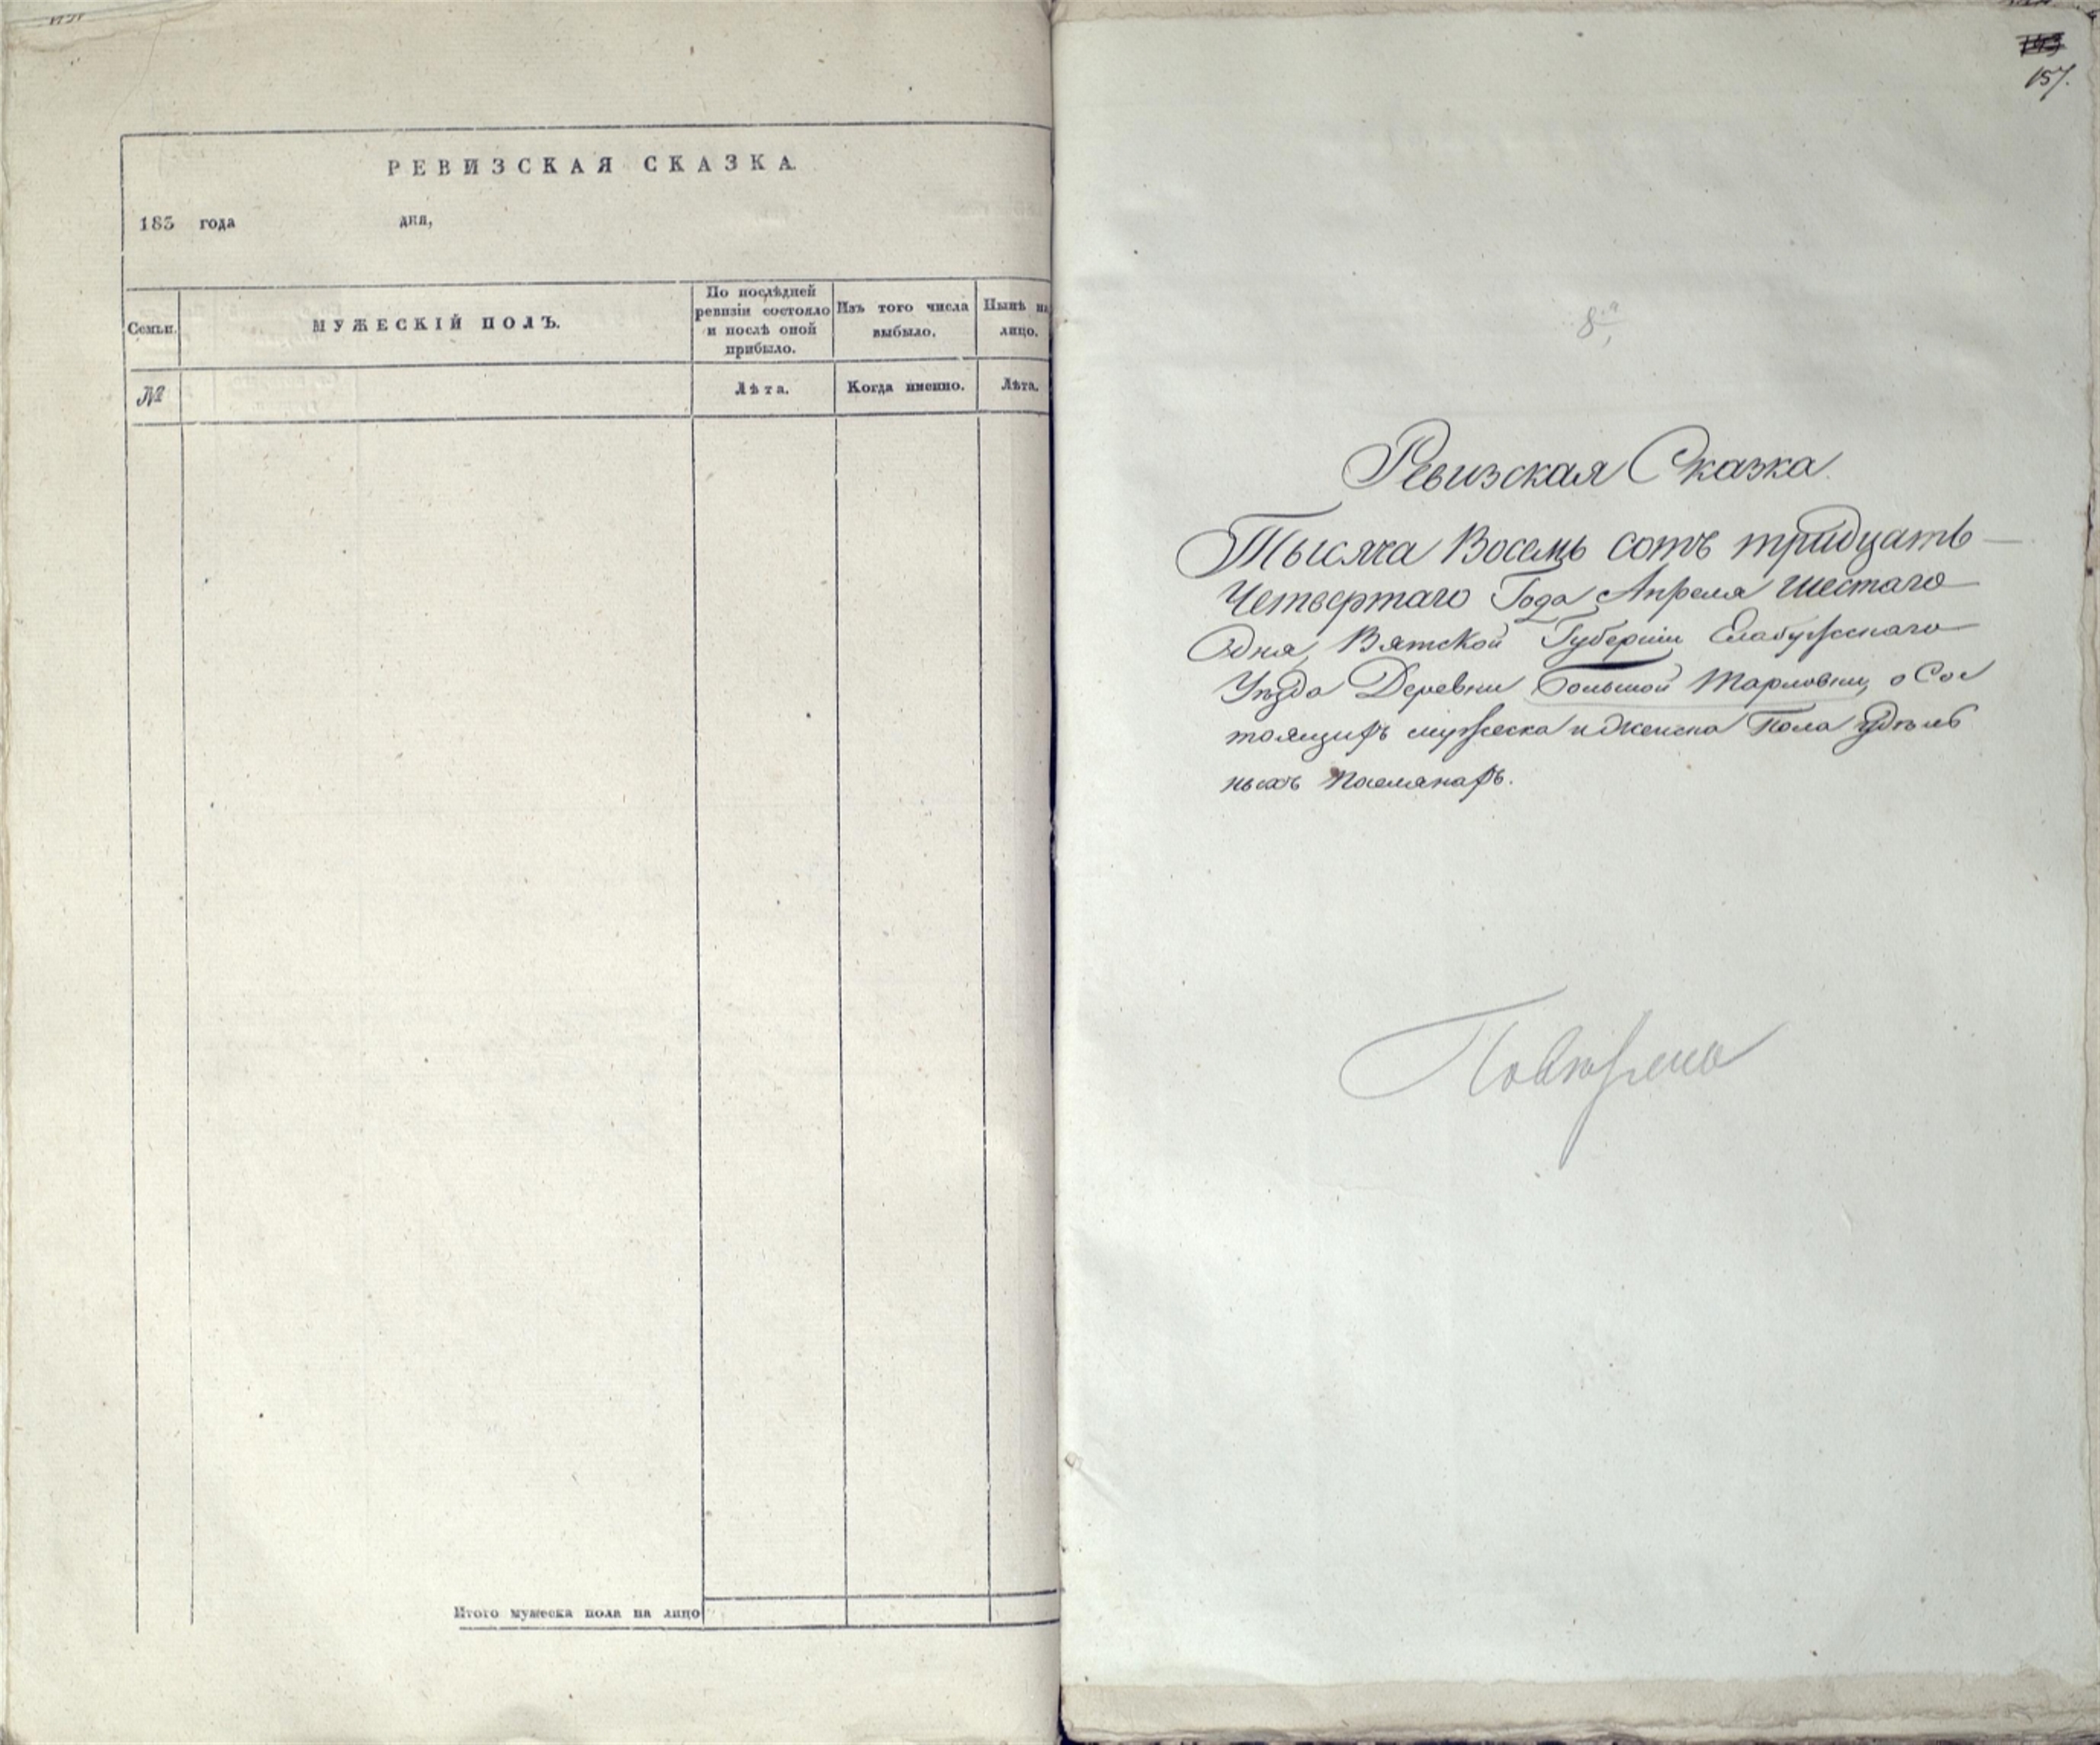 РЕВИЗСКАЯ СКАЗКА.
183 года дня,
Семьи.
МУЖЕСКІЙ ПОЛЪ.
По послѣдней
ревизіи состояло
и послѣ оной
прибыло.
Изъ того числа
выбыло.
Нынѣ на
лицо.
№
Лѣта.
Когда именно.
Лѣта.
Итого мужеска пола на лицо
143
157.
8.я
Ревизская Сказка
Тысяча Восемь сотъ тридцать
Четвертаго Года Апреля шестаго
дня, Вятской Губерніи Елабужскаго
Уѣзда Деревни Большой Тарловки, о Сос
тоящихъ мужеска и женска Пола удѣль
ныхъ поселянахъ.
Повѣрена